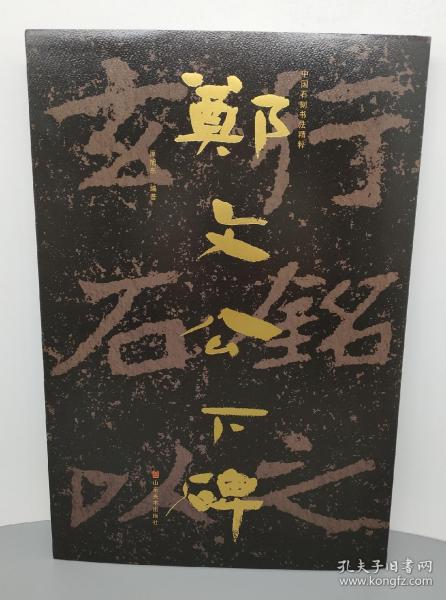 中国石刻书法精粹
鄭文公下碑
编著
山东美术出版社
于銘之
玄石以
孔夫子旧书网
www.kongfz.com